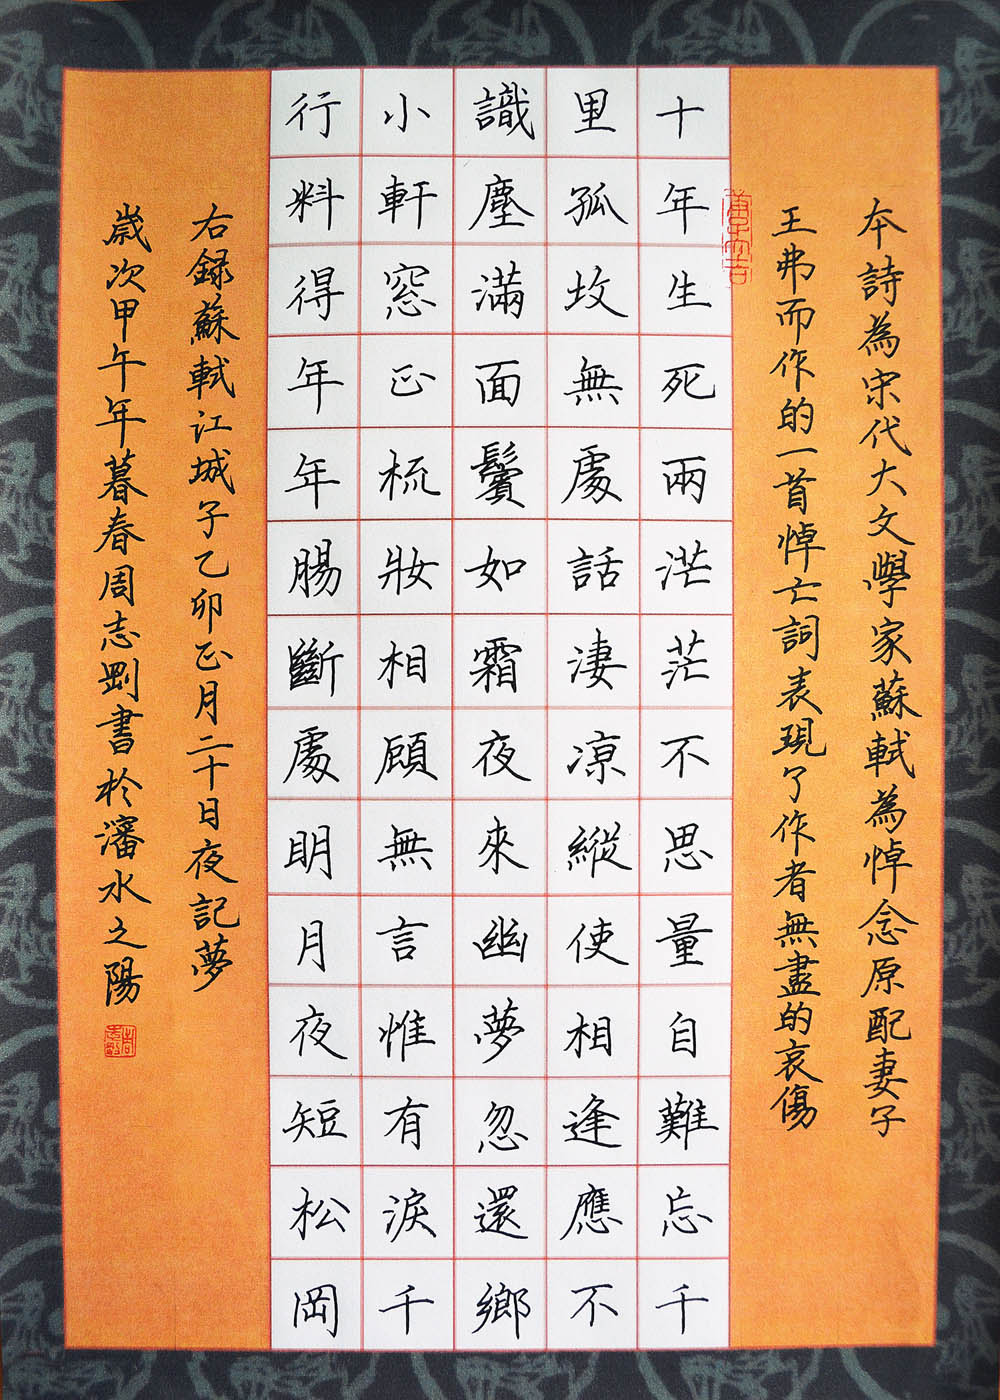 本詩為宋代大文學家蘇軾為悼念原配妻子
王弗而作的一首悼亡詞表現了作者無盡的哀傷
十年生死兩茫茫不思量自難忘千
里孤墳無處話淒涼縱使相逢應不
識塵滿面鬢如霜夜來幽夢忽還鄉
小軒窓正梳妝相顧無言惟有淚千
行料得年年腸斷處明月夜短松岡
右録蘇軾江城子乙卯正月二十日夜記夢
歲次甲午年暮春周志剛書於瀋水之陽